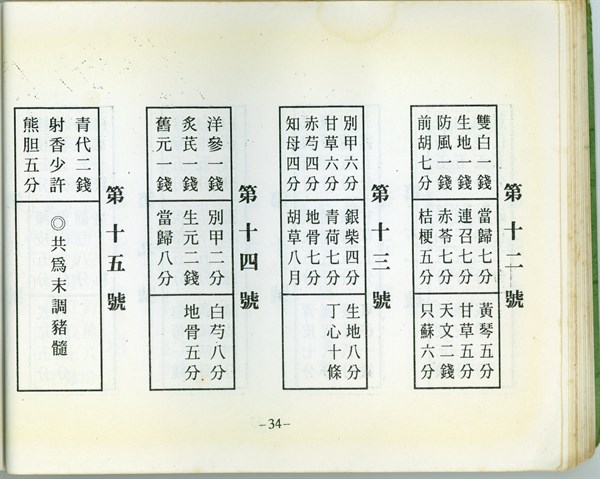 第十二號
雙白一錢 當歸七分 黃琴五分
生地一錢 連召七分 甘草五分
防風一錢 赤苓七分 天文二錢
前胡七分 桔梗五分 只蘇六分
第十三號
別甲六分 銀柴四分 生地八分
甘草六分 青荷七分 丁心十條
赤芍四分 地骨七分
知母四分 胡草八月
第十四號
洋參一錢 別甲二分 白芍八分
炙芪一錢 生元二錢 地骨五分
舊元一錢 當歸八分
第十五號
青代二錢
射香少許 ◎共爲末調豬髓
熊胆五分
-34-